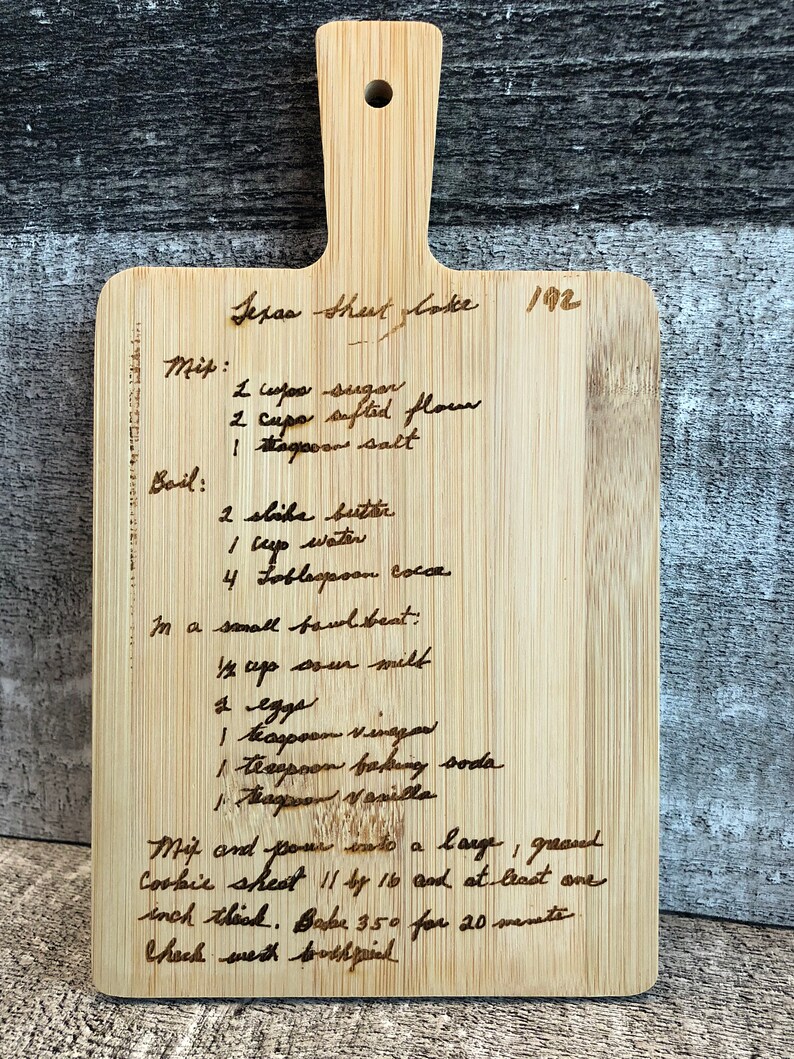 Texas Sheet Cake 192
Mix:
2 cups sugar
2 cups sifted flour
1 teaspoon salt
Boil:
2 sticks butter
1 cup water
4 Tablespoon cocoa
In a small bowl beat:
1/2 cup sour milk
2 eggs
1 teaspoon vinegar
1 teaspoon baking soda
1 teaspoon vanilla
Mix and pour into a large, greased
Cookie sheet 11 by 16 and at least one
inch thick. Bake 350 for 20 minute
Check with toothpick